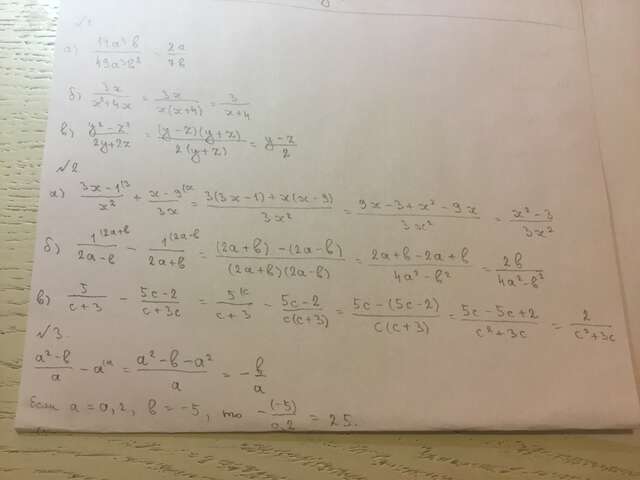 №1
а) 14a³b/49a³b² = 2a/7b
б) 3x/(x²+4x) = 3x/(x(x+4)) = 3/(x+4)
в) (y²-z²)/(2y+2z) = ((y-z)(y+z))/(2(y+z)) = (y-z)/2
№2
а) (3x-1)/x² ⁽³ + (x-9)/3x ⁽ˣ = (3(3x-1)+x(x-9))/3x² = (9x-3+x²-9x)/3x² = (x²-3)/3x²
б) 1/(2a-b) ⁽²ᵃ⁺ᵇ - 1/(2a+b) ⁽²ᵃ⁻ᵇ = ((2a+b)-(2a-b))/((2a+b)(2a-b)) = (2a+b-2a+b)/(4a²-b²) = 2b/(4a²-b²)
в) 5/(c+3) - (5c-2)/(c²+3c) = 5/(c+3) ⁽ᶜ - (5c-2)/(c(c+3)) = (5c-(5c-2))/(c(c+3)) = (5c-5c+2)/(c²+3c) = 2/(c²+3c)
№3.
(a²-b)/a - a ⁽ᵃ = (a²-b-a²)/a = -b/a
Если a = 0,2, b = -5, то -(-5)/0,2 = 25.